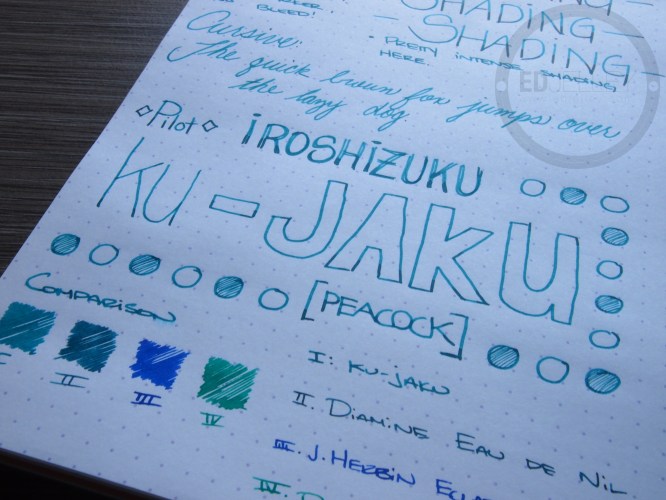 BLEED!
SHADING
- SHADING -
- SHADING -
• PRETTY INTENSE SHADING HERE.
Cursive:
The quick brown fox jumps over
the lazy dog
◇Pilot◇ IROSHIZUKU
KU-JAKU
[PEACOCK]
COMPARISON
II III IV
I: KU-JAKU
II. DIAMINE EAU DE NIL
III. J. HERBIN
IV.